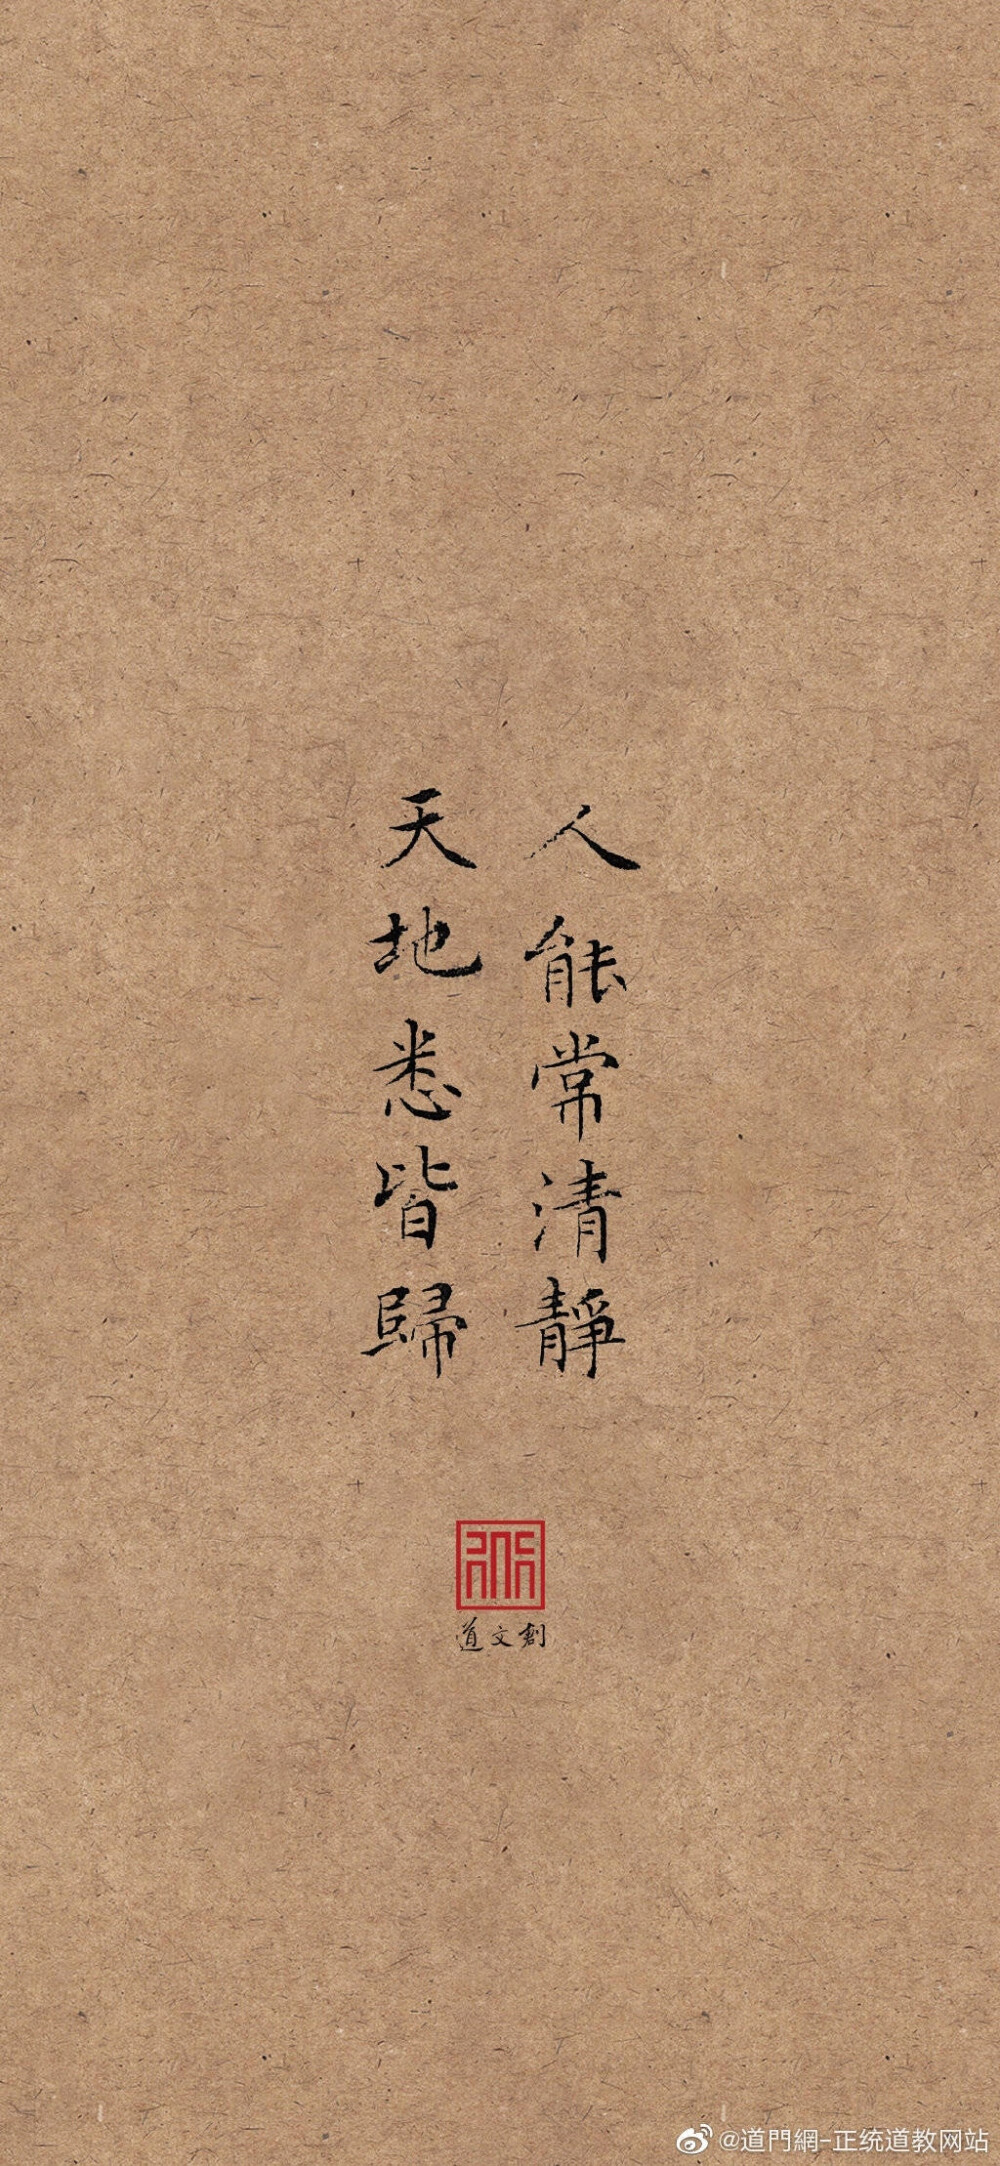 人能常清靜
天地悉皆歸
道文創
@道門網-正统道教网站